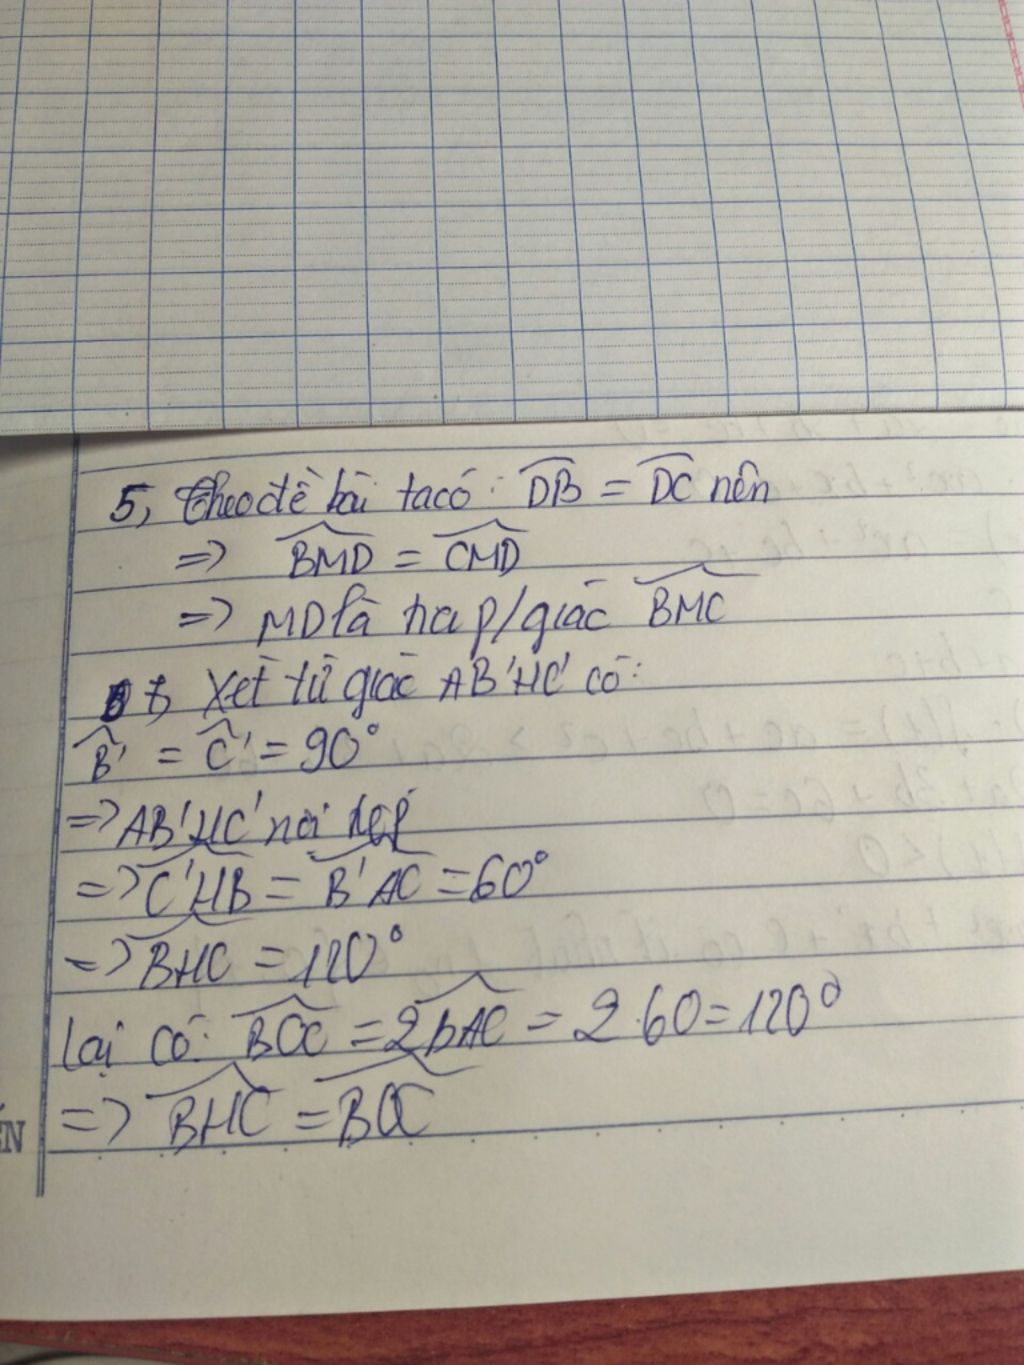 5, Theo đề bài ta có: DB = DC nên
=> BMD = CMD
=> MD là tia p/giác BMC
t, Xét tứ giác AB'HC' có:
B' = C' = 90°
=> AB'HC' nội tiếp
=> C'HB = B'AC = 60°
=> BHC = 120°
Lại có: BOC = 2BAC = 2.60 = 120°
=> BHC = BOC